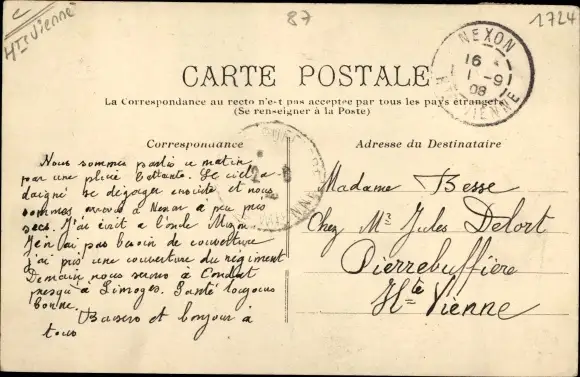 Hte Vienne
87
1724
NEXON
16
1 -9
08
Hte VIENNE
CARTE POSTALE
La Correspondance au recto n'est pas acceptée par tous les pays étrangers
(Se renseigner à la Poste)
Correspondance
Adresse du Destinataire
Nous sommes partis ce matin
par une pluie battante. Le ciel a
daigné se dégager ensuite et nous
sommes arrivés à Nexon à peu près
secs. J'ai écrit à l'oncle
Je n'ai pas besoin de couverture
j'ai pris une couverture du régiment
Demain nous serons à Condat
presqu'à Limoges. Santé toujours
bonne.
Baisers et bonjour a
tous
Madame Besse
Chez Mr Jules Delort
Pierrebuffière
Hte Vienne